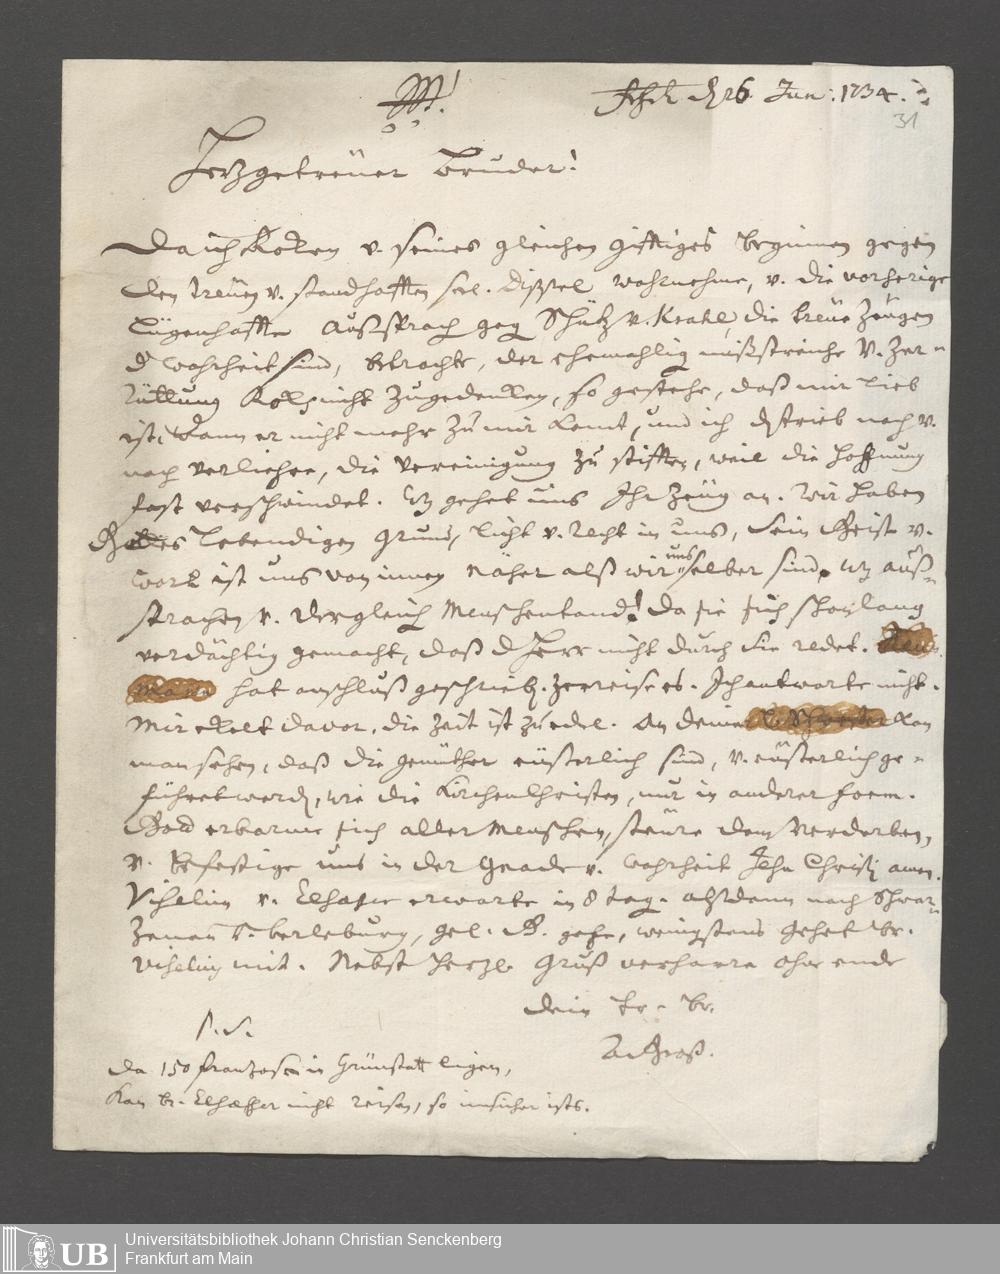 Ffth d 26 Jun: 1734.
31
Hertzgetreuer Bruder!
Da ich Kolen v. seines gleichen gifftiges beginnen gegen
den treuen v. standhafften sel. Dissel wahrnehme, v. die vorherige
lügenhaffte Außsprach geg Schütz v. Krahl, die treue Zeugen
d wahrheit sind, betrachte, der ehemahlig mißstreiche v. Zer-
rüttung nicht Zugedencken, so gestehe, daß mir lieb
ist, wann er nicht mehr zu mir komt, und ich trieb nach v.
nach verliehre, die Vereinigung zu stifften, weil die hoffnung
fast verschwindet. gehet uns Ihr Zeug an. Wir haben
Gottes lebendigen Grund, licht v. recht in uns, sein Geist v.
wort ist uns von innen näher alß wir uns selber sind. auß-
sprachen v. dergleich Menschentand! da sie sich schon lang
verdächtig gemacht, daß d Herr nicht durch sie redet.
hat anschluß geschrieb. zerreise es. Ich antworte nicht.
Mir ekelt davor, die Zeit ist zu edel. An deiner Schwester kan
man sehen, daß die gemüther eusserlich sind, v. eüsserlich ge-
führet werd, wie die Kirchenchristen, nur in anderer form.
Gott erbarme sich aller Menschen, steure dem Verderben,
v. befestige uns in der Gnade v. wahrheit Jesu Christi amen.
v. Elsasser erwarte in 8 tag. alsdann nach Schwar-
zenau v. berleburg, gel. G. gehe, wenigstens gehet br.
mit. Nebst herzl. Gruß verharre ohne ende
dein tr. br.
A. Groß.
P. S.
da 150 frantzosen in Grünstatt ligen,
kan br. Elsasser nicht reisen, so unsicher ists.
UB
Universitätsbibliothek Johann Christian Senckenberg
Frankfurt am Main